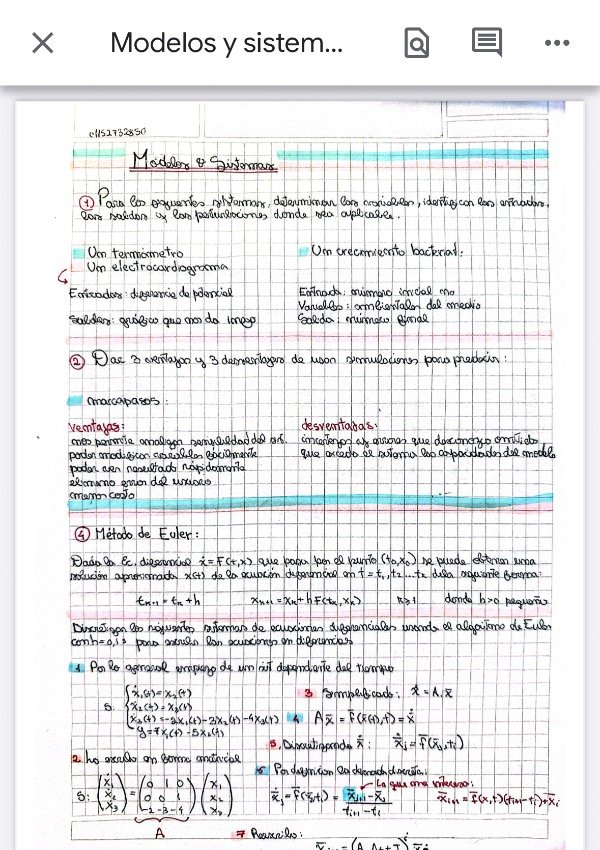 Modelos y sistem...
01152732850
Modelos & Sistemas
① Para los siguientes sistemas, determinar las variables, identifican las entradas,
las salidas y las perturbaciones donde sea aplicable.
Un termómetro
Un electrocardiograma
Entradas: diferencia de potencial
Salidas: gráfico que nos da
Un crecimiento bacterial:
Entrada: número inicial no
Variables: ambientales del medio
Salida: número final
② Dar 3 ventajas y 3 desventajas de usar simulaciones para predecir:
marcapasos:
ventajas:
nos permite analizar sensibilidad del sis.
poder modificar variables fácilmente
poder ver resultado rápidamente
elimino error del usuario
menos costo
desventajas:
incertezas y errores que desconozco
que exceda el sistema las capacidades del modelo
④ Método de Euler:
Dada la Ec. diferencial ẋ = F(t,x) que pasa por el punto (t₀,x₀) se puede obtener una
solución aproximada x(t) de la ecuación diferencial en t = t₁, t₂... de la siguiente forma:
tₖ₊₁ = tₖ + h    xₖ₊₁ = xₖ + h F(tₖ, xₖ)    donde h>0 pequeño
Discretizar los siguientes sistemas de ecuaciones diferenciales usando el algoritmo de Euler
con h=0,1 para escribir las ecuaciones en diferencias
1 Por lo general empiezo de un sist dependiente del tiempo
S: { ẋ₁(t) = x₂(t)
ẋ₂(t) = x₃(t)
ẋ₃(t) = -2x₁(t) - 3x₂(t) - 4x₃(t)
y = 7x₁(t) - 5x₂(t)
2. lo escribo en forma matricial
S: (ẋ₁ ẋ₂ ẋ₃) = (0 1 0 / 0 0 1 / -2 -3 -4) (x₁ x₂ x₃)
A
3 Simplificado: ẋ = A.x̄
4 A x̄ = F̄(x̄(t),t) = ẋ
5. Discretizando ẋ: ẋⱼ = F̄(x̄ⱼ,tᵢ)
6 Por definición la derivada discreta:
Lo que me interesa:
7 Reescribo: